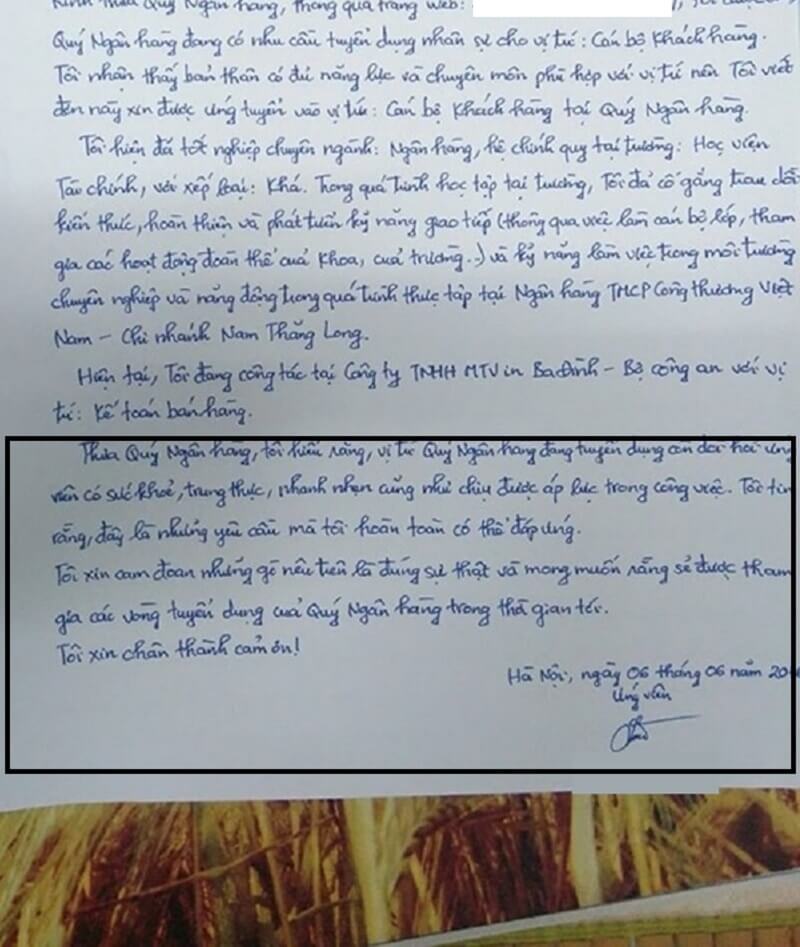 Kính thưa Quý Ngân hàng, thông qua trang web:
Quý Ngân hàng đang có nhu cầu tuyển dụng nhân sự cho vị trí: Cán bộ Khách hàng.
Tôi nhận thấy bản thân có đủ năng lực và chuyên môn phù hợp với vị trí nên Tôi viết
đơn này xin được ứng tuyển vào vị trí: Cán bộ Khách hàng tại Quý Ngân hàng.
Tôi hiện đã tốt nghiệp chuyên ngành: Ngân hàng, hệ chính quy tại trường: Học viện
Tài chính, với xếp loại: Khá. Trong quá trình học tập tại trường, Tôi đã cố gắng trau dồi
kiến thức, hoàn thiện và phát triển kỹ năng giao tiếp (thông qua việc làm cán bộ lớp, tham
gia các hoạt động đoàn thể của Khoa, của trường...) và kỹ năng làm việc trong môi trường
chuyên nghiệp và năng động trong quá trình thực tập tại Ngân hàng TMCP Công thương Việt
Nam - Chi nhánh Nam Thăng Long.
Hiện tại, Tôi đang công tác tại Công ty TNHH MTV in Ba Đình - Bộ công an với vị
trí: Kế toán bán hàng.
Thưa Quý Ngân hàng, tôi hiểu rằng, vị trí Quý Ngân hàng đang tuyển dụng cần đòi hỏi ứng
viên có sức khoẻ, trung thực, nhanh nhẹn cũng như chịu được áp lực trong công việc. Tôi tin
rằng, đây là những yêu cầu mà tôi hoàn toàn có thể đáp ứng.
Tôi xin cam đoan những gì nêu trên là đúng sự thật và mong muốn rằng sẽ được tham
gia các vòng tuyển dụng của Quý Ngân hàng trong thời gian tới.
Tôi xin chân thành cảm ơn!
Hà Nội, ngày 06 tháng 06 năm
Ứng viên